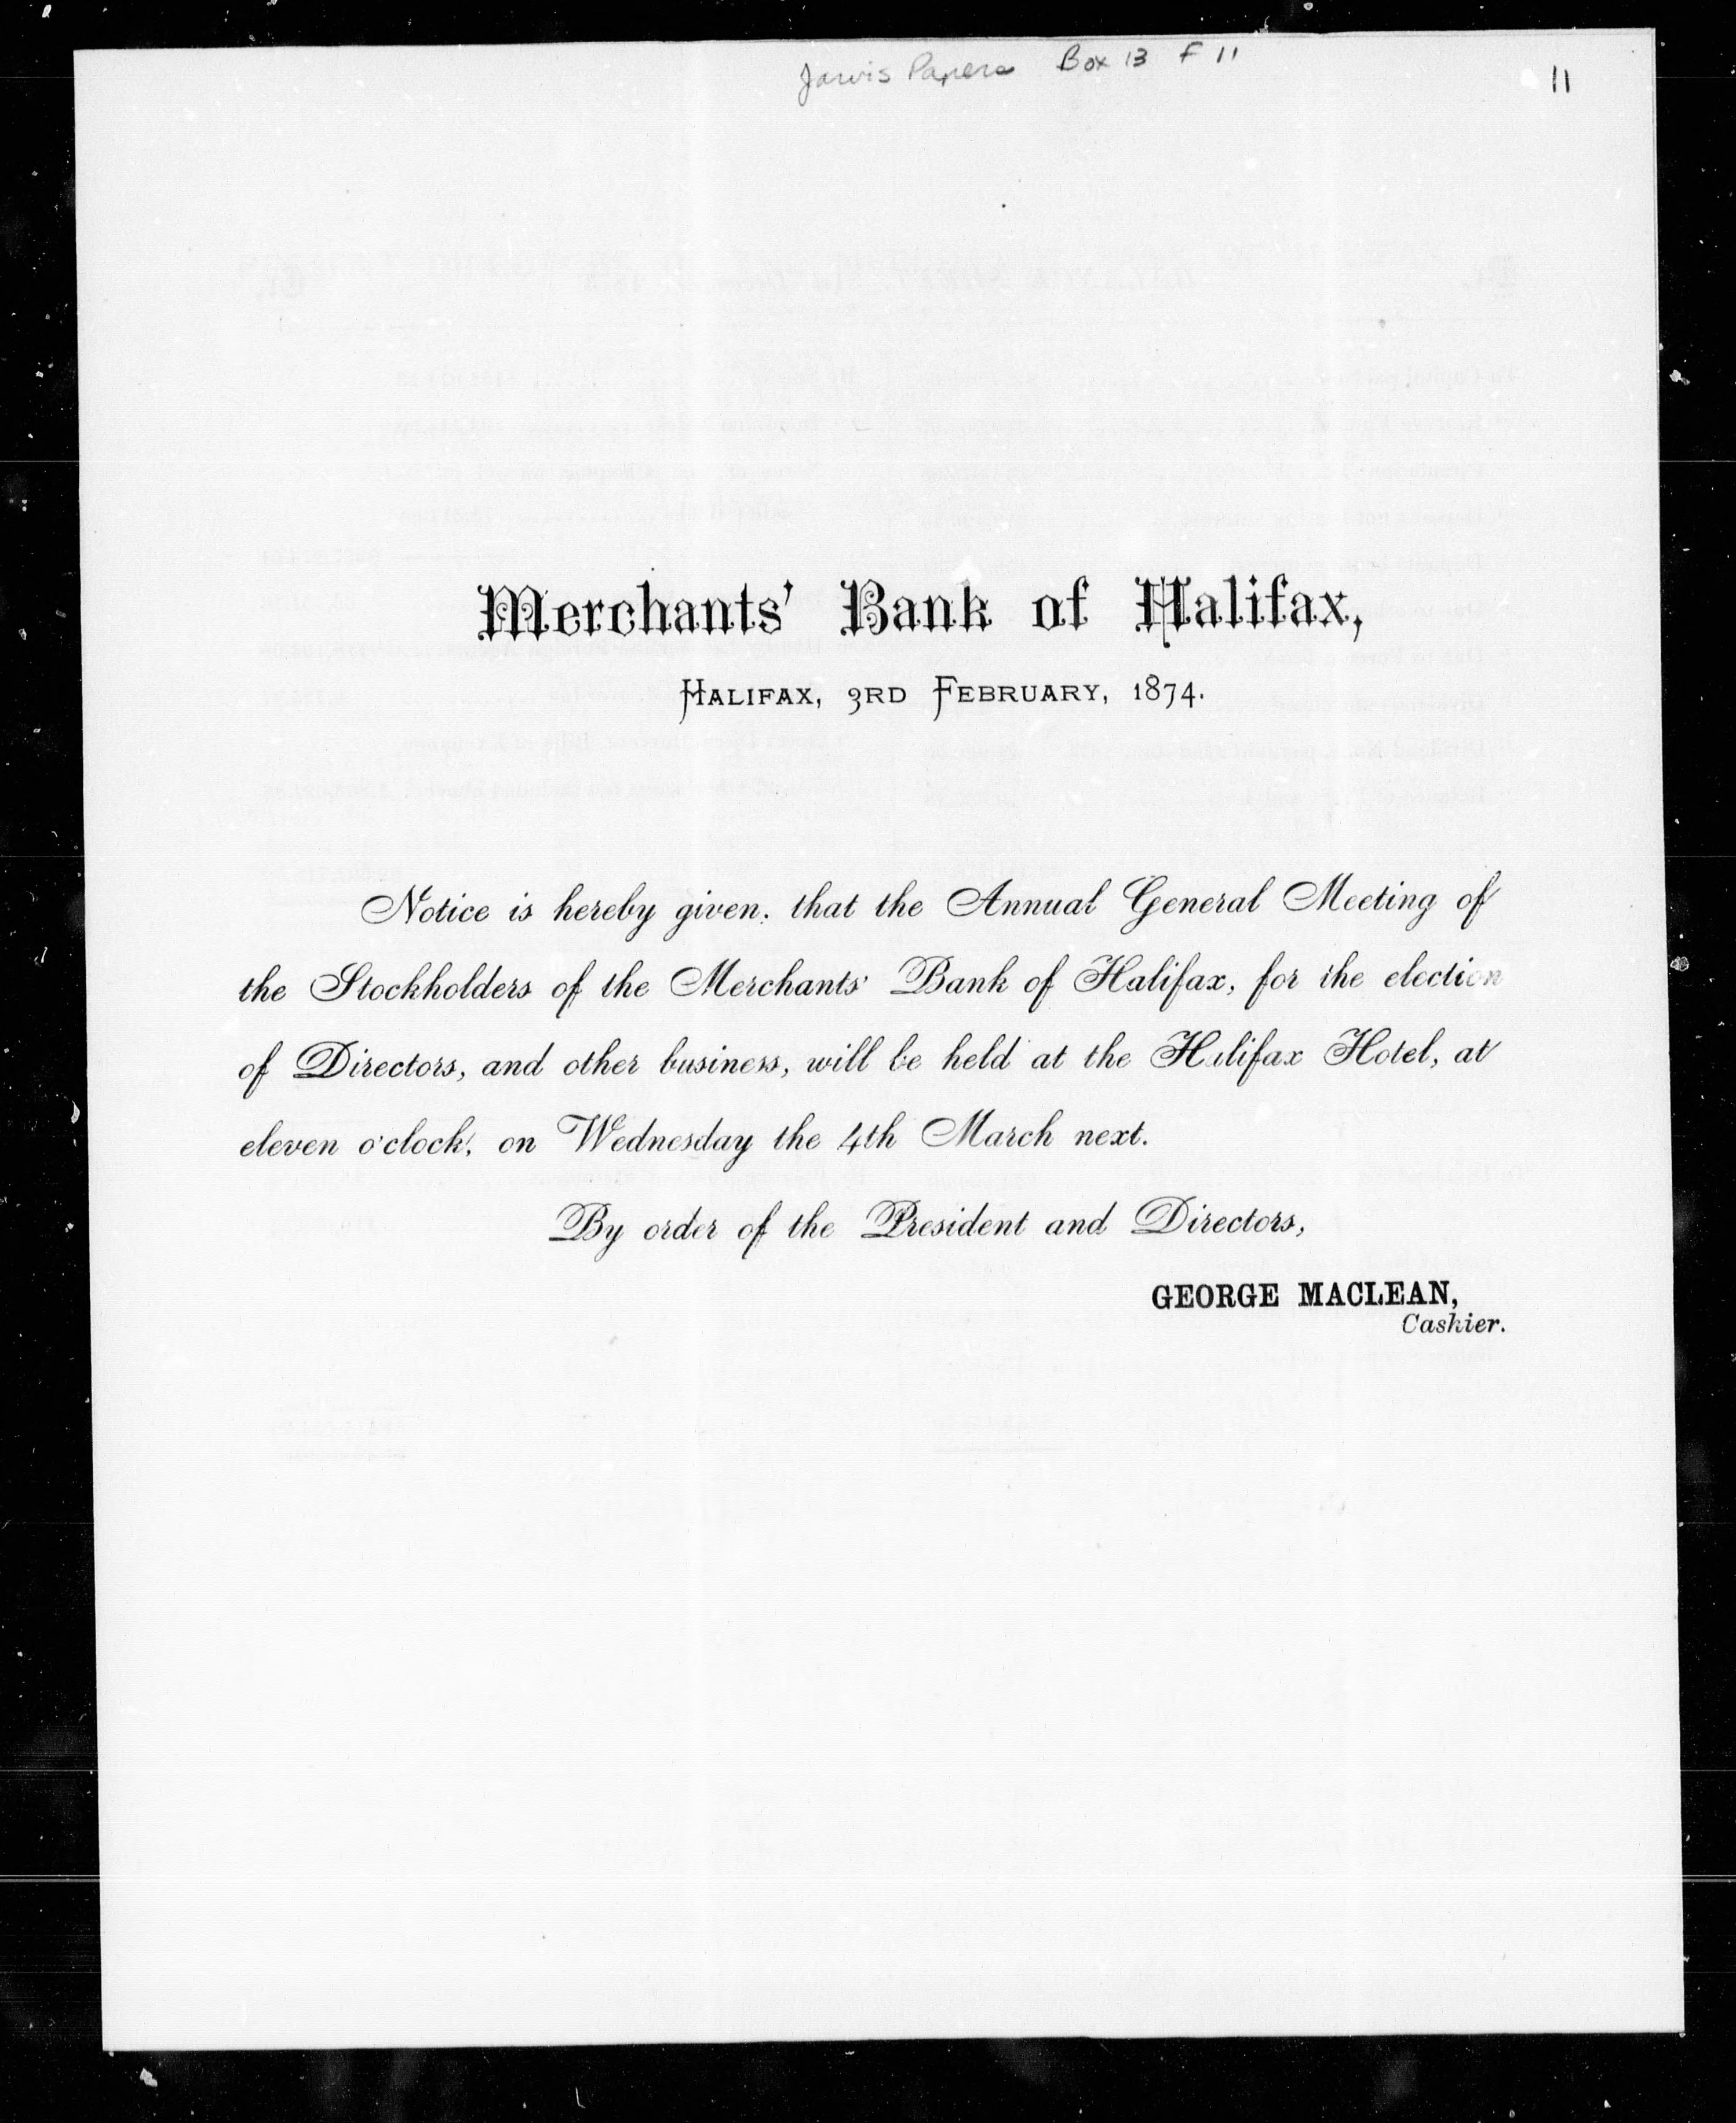 Jarvis Papers Box 13 F 11
11
Merchants' Bank of Halifax,
Halifax, 3rd February, 1874.
Notice is hereby given, that the Annual General Meeting of
the Stockholders of the Merchants' Bank of Halifax, for the election
of Directors, and other business, will be held at the Halifax Hotel, at
eleven o'clock, on Wednesday the 4th March next.
By order of the President and Directors,
GEORGE MACLEAN,
Cashier.